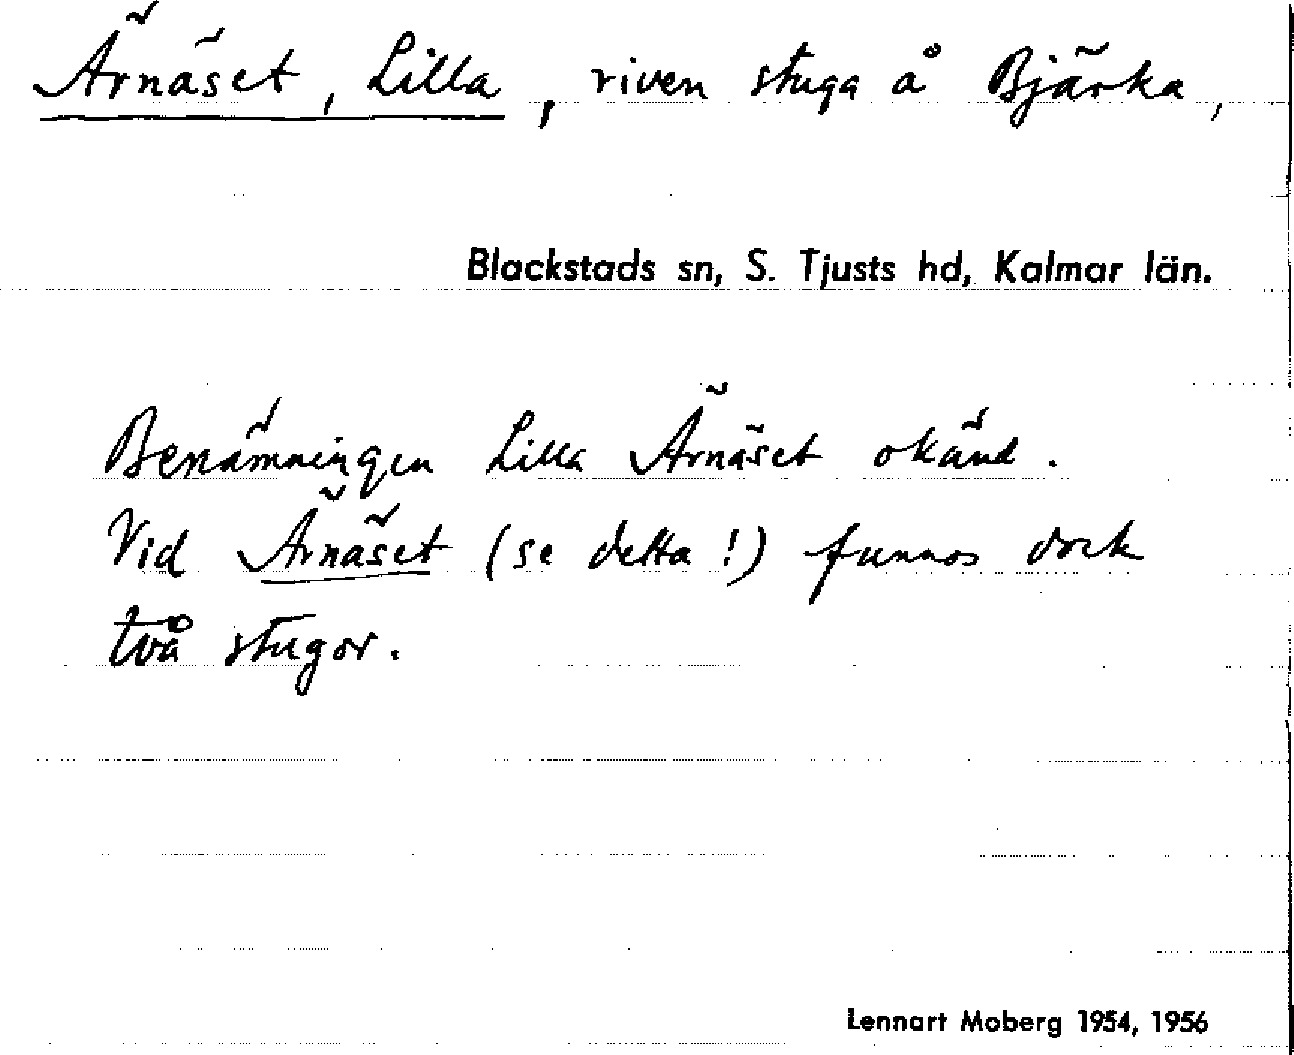 Ärnäset, Lilla, riven stuga å Bjärka,
Blackstads sn, S. Tjusts hd, Kalmar län.
Benämningen Lilla Ärnäset okänd.
Vid Ärnäset (se detta!) funnos dock
två stugor.
Lennart Moberg 1954, 1956